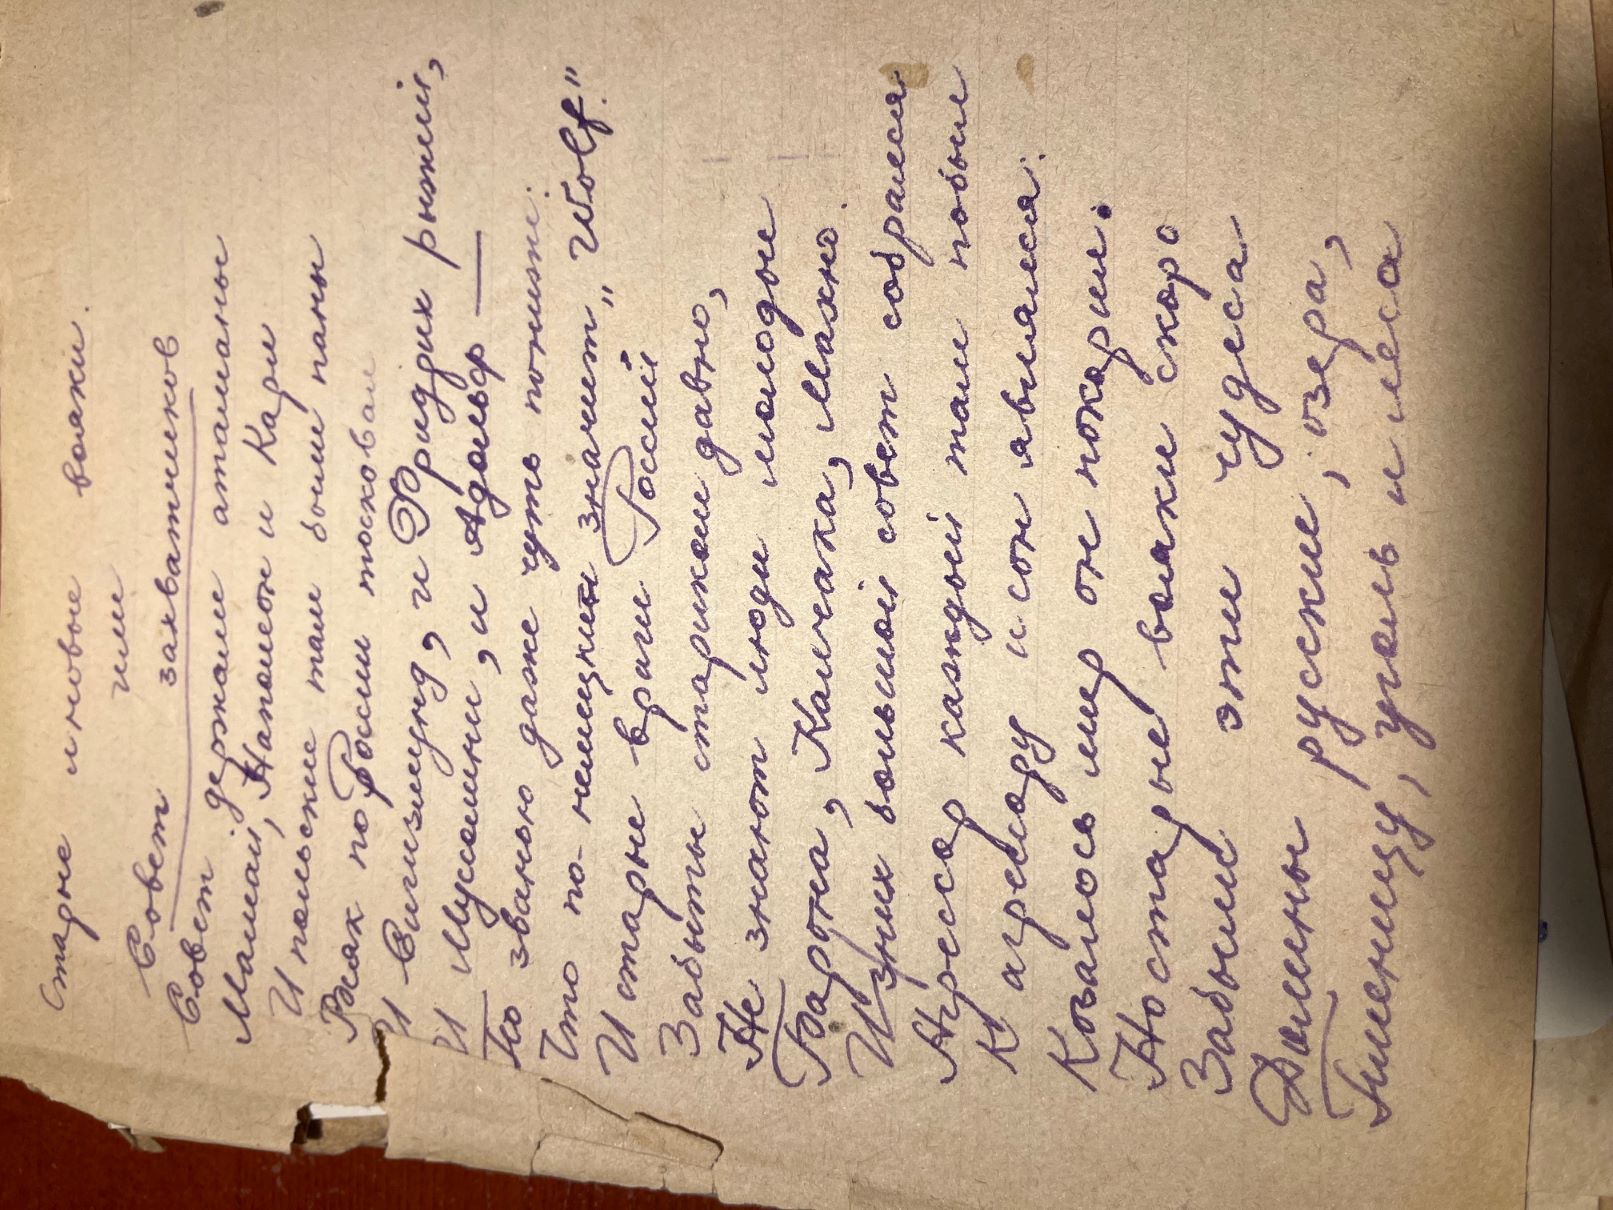 Старые и новые волки.
или
Совет захватчиков
Совет держали атаманы
Мамай, Наполеон и Карл
И польские там были паны
Всяк по Россіи тосковал
И Сигизмунд, и Фридрих рыжий,
И Мусолини, и Адольф —
По званью даже чуть пониже:
Что по-немецки значит „Wolf."
И старые враги Росии
Забыты стариками давно,
Не знают люди молодые
Барона, Колчака, Махно.
Из них большой совет собрался
Агрессор каждый там побыл
К агрессору и сон являлся:
Козалось мир он покорил.
Но старые волки скоро
Забыли эти чудеса
Долины русские, озера,
Пшеницу, уголь и леса